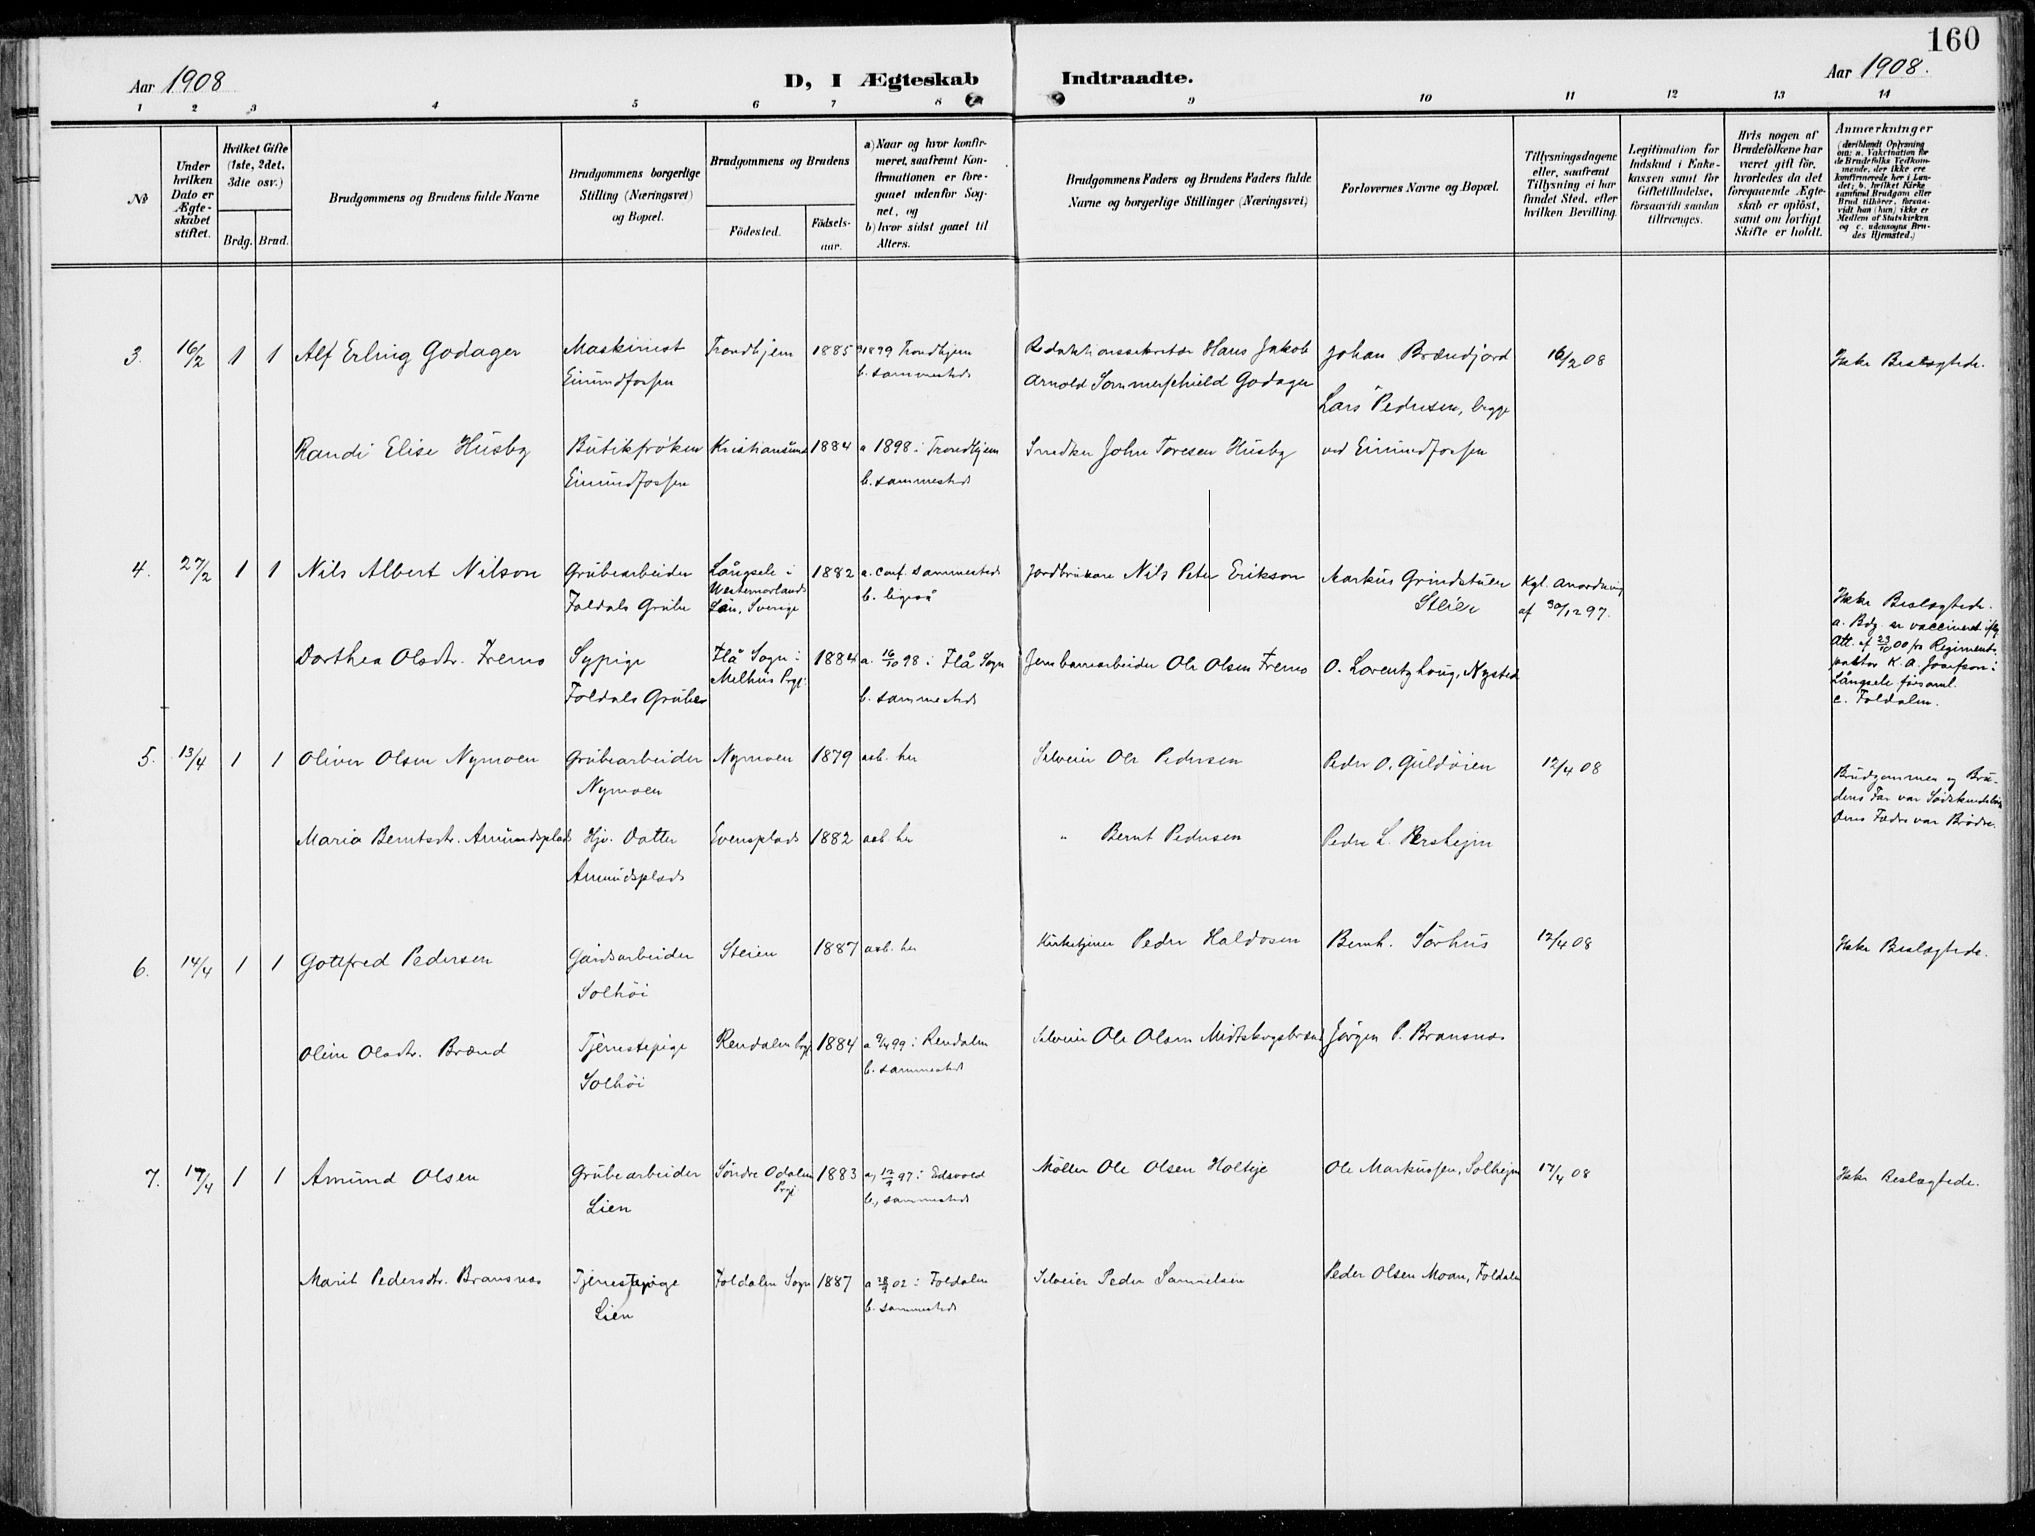 160
Aar 1908
D, I Ægteskab Indtraadte.
Aar 1908.
1 2 3 4 5 6 7 8 9 10 11 12 13 14
No
Under hvilken Dato er Ægteskabet stiftet.
Hvilket Gifte (1ste, 2det, 3die osv.)
Brdg. Brud.
Brudgommens og Brudens fulde Navne
Brudgommens borgerlige Stilling (Næringsvei) og Bopæl.
Brudgommens og Brudens
Fødested.
Fødselsaar.
a) Naar og hvor konfirmeret, saafremt Konfirmationen er foregaaet udenfor Sognet, og
b) hvor sidst gaaet til Alters.
Brudgommens Faders og Brudens Faders fulde Navne og borgerlige Stillinger (Næringsvei)
Forlovernes Navne og Bopæl.
Tillysningsdagene eller, saafremt Tillysning ei har fundet Sted, efter hvilken Bevilling.
Legitimation for Indskud i Enkekassen samt for Giftetilladelse, forsaavidt saadan tiltrænges.
Hvis nogen af Brudefolkene har været gift før, hvorledes da det foregaaende Ægteskab er opløst, samt om lovligt Skifte er holdt.
Anmærkninger
(deriblandt Oplysning om: a. Vakcination for de Brudefolks Vedkommende, der ikke ere konfirmerede her i Landet; b. hvilket Kirkesamfund Brudgom eller Brud tilhører, forsaavidt han (hun) ikke er Medlem af Statskirken og c. udensogns Brudes Hjemsted.)
3. 16/2 1 1 Alf Erling Godager
Maskinist
Einundfossen
Trondhjem 1885
a 1899 Trondhjem
b. sammesteds
Redaktionssekretær Hans Jakob
Arnold Sommerschield Godager
Johan Brændjord
Lars Pedersen, begge
16/2 08
Ikke Beslægtede.
Randi Elise Husby
Butikfrøken
Einundfossen
Kristiansund 1884
a 1898 i Trondhjem
b. sammesteds
Snedker John Toresen Husby
ved Einundfossen
4. 27/2 1 1 Nils Albert Nilson
Grubearbeider
Foldals Grube
Långsele i
Westernorlands
Län, Sverige
1882
a. conf. sammesteds
b. ligeså
Jordbrukare Nils Peter Erikson
Markus Grindstuen
Steien
Kgl. Anordning
af 30/12 97.
Ikke Beslægtede.
a. Bdg. er vaccineret iflg.
Att. af 23/10 00 fra Regiments-
pastor K. A. Josefson i
Långsele församl.
c. Foldalen.
Dorthea Olsdtr. Fremo
Sypige
Foldals Gruber
Flå Sogn i
Melhus Prgj.
1884
a. 16/10 98 i Flå Sogn
b. sammesteds
Jernbanearbeider Ole Olsen Fremo
O. Lorentzhoug, Nysted
5. 13/4 1 1 Oliver Olsen Nymoen
Grubearbeider
Nymoen
Nymoen 1879 aab. her
Selveier Ole Pedersen
Peder O. Guldøien
12/4 08
Brudgommen og Bru-
dens Far var Sødskendebørn
Deres Fædre var Brødre.
Maria Berntsdtr. Amundsplads
Hjv. Datter
Amundsplads
Evensplads 1882 aab. her
" Bernt Pedersen
Peder L. Ryeshejm
6. 14/4 1 1 Gottfred Pedersen
Gårdsarbeider
Solhøi
Steien 1887 aab. her
Kirketjener Peder Haldosen
Bernh. Sørhus
12/4 08
Ikke Beslægtede.
Oline Olsdtr. Brænd
Tjenestepige
Solhøi
Rendalen Prgj. 1884
a 9/4 99 i Rendalen
b. sammesteds
Selveier Ole Olsen Midtskogsbrænd
Jørgen P. Bransnes
7. 17/4 1 1 Amund Olsen
Grubearbeider
Lien
Søndre Odalen
Prgj.
1883
a, 12/9 97 i Eidsvold
b, sammesteds
Møller Ole Olsen Holteje
Ole Markussen, Solhejm
17/4 08
Ikke Beslægtede.
Marit Pedersdtr. Bransnes
Tjenestepige
Lien
Foldalen Sogn 1887
a 28/9 02 i Foldalen
b. sammesteds
Selveier Peder Samuelsen
Peder Olsen Moan, Foldalen